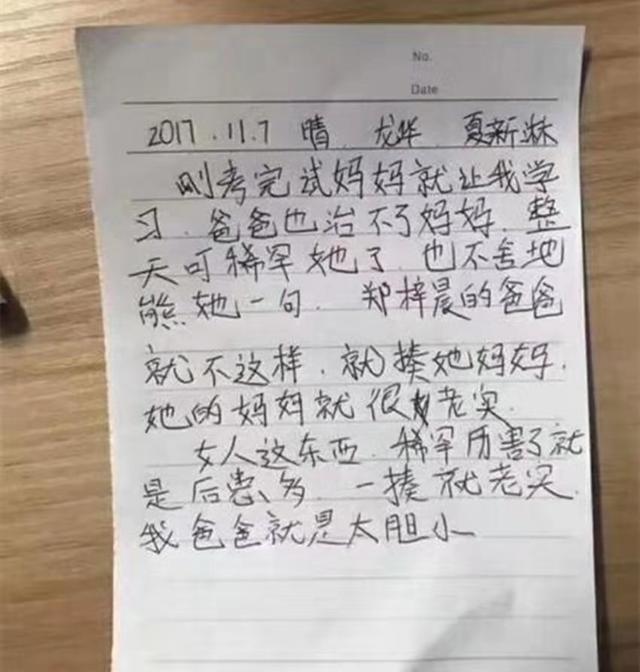 No.
Date
2017.11.7 晴 龙华 夏新淋
刚考完试妈妈就让我学
习.爸爸也治不了妈妈.整
天可稀罕她了.也不舍地
熊她一句. 郑梓晨的爸爸
就不这样.就揍她妈妈.
她的妈妈就很老实.
女人这东西.稀罕历害了就
是后患多.一揍就老实.
我爸爸就是太胆小